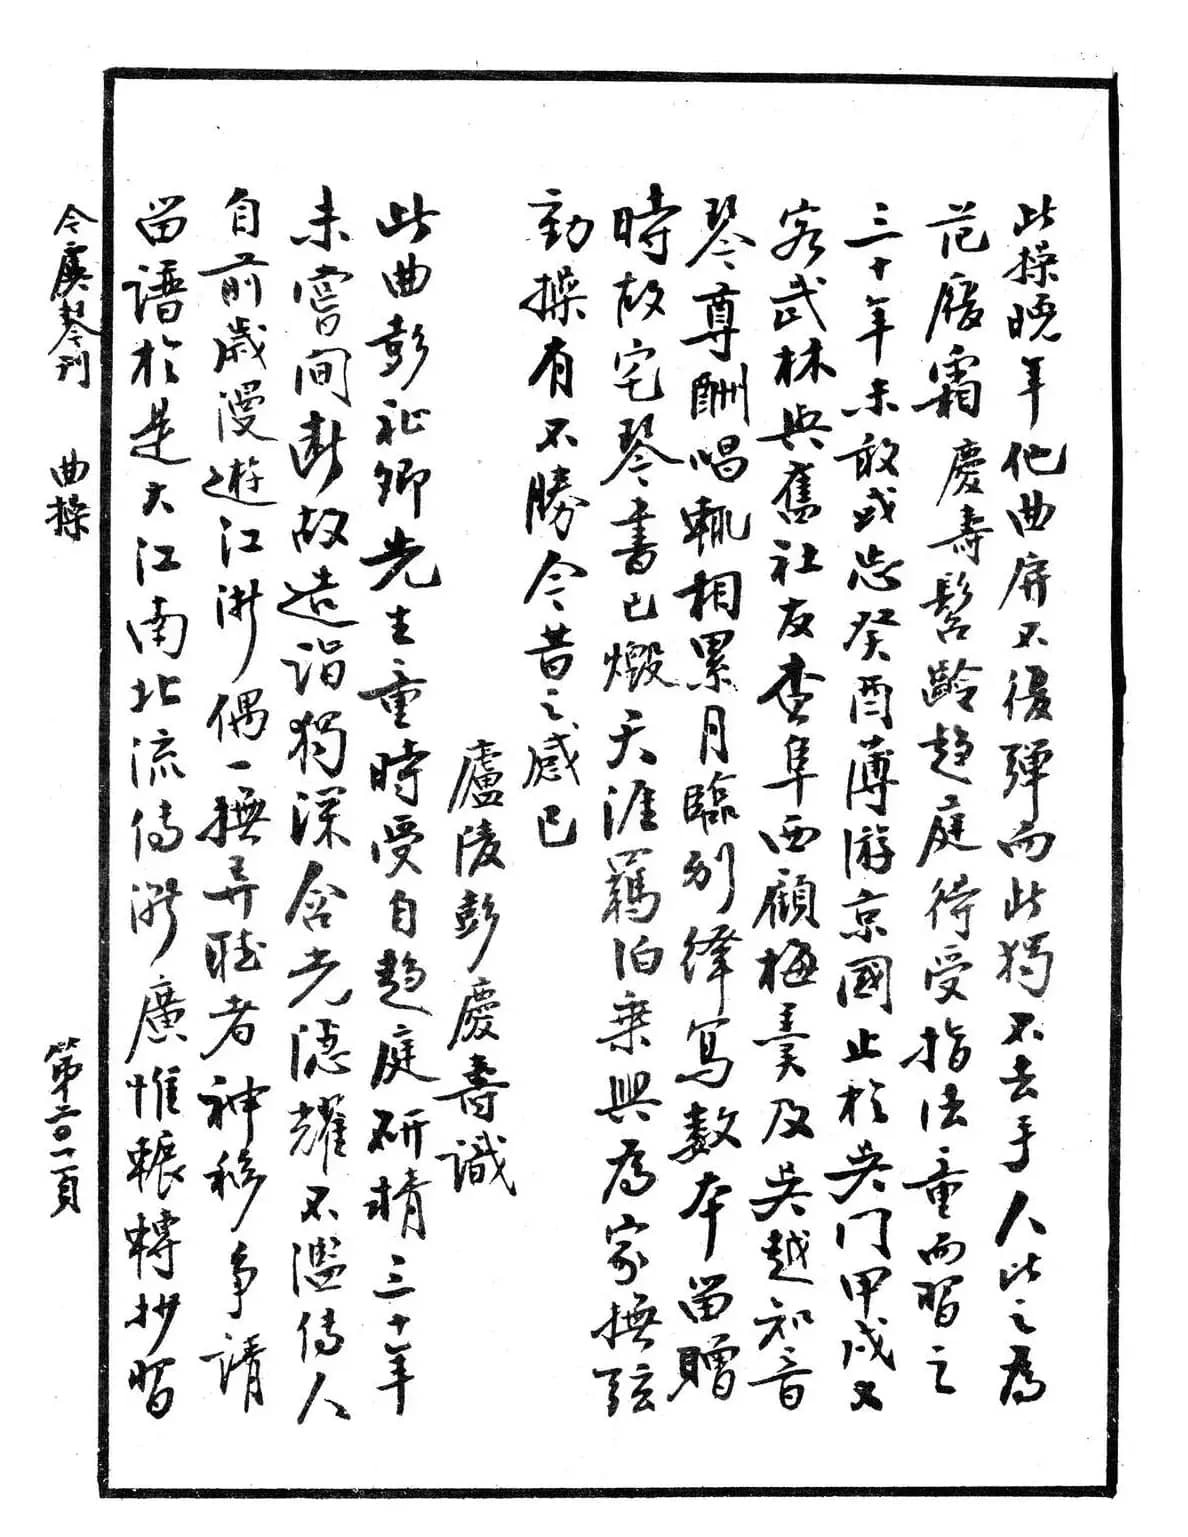 此操晚年他曲屏不復彈而此獨不去手人比之為
范履霜慶壽髫齡趨庭得受指法童而習之
三十年未敢或忘癸酉薄游京國止於吳門甲戌又
客武林與舊社友查阜西顧梅羹及吳越知音
琴尊酬唱輒相累月臨別繹寫數本留贈
時故宅琴書已燬天涯羈泊棄與為家撫弦
動操有不勝今昔之感已
廬陵彭慶壽識
此曲彭祉卿先生童時受自趨庭研精三十年
未嘗間斷故造詣獨深含光隱耀不濫傳人
自前歲漫遊江浙偶一撫弄聽者神移爭請
留譜於是大江南北流傳漸廣惟輾轉抄習
今虞琴刊
曲操
第二〇一頁